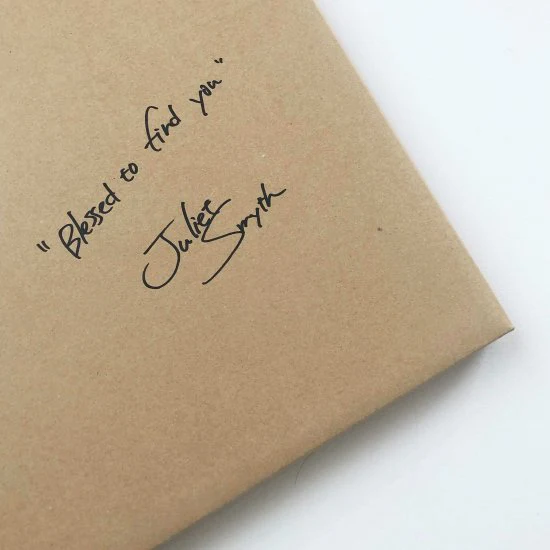 "Blessed to find you"
Juliet
Smyth